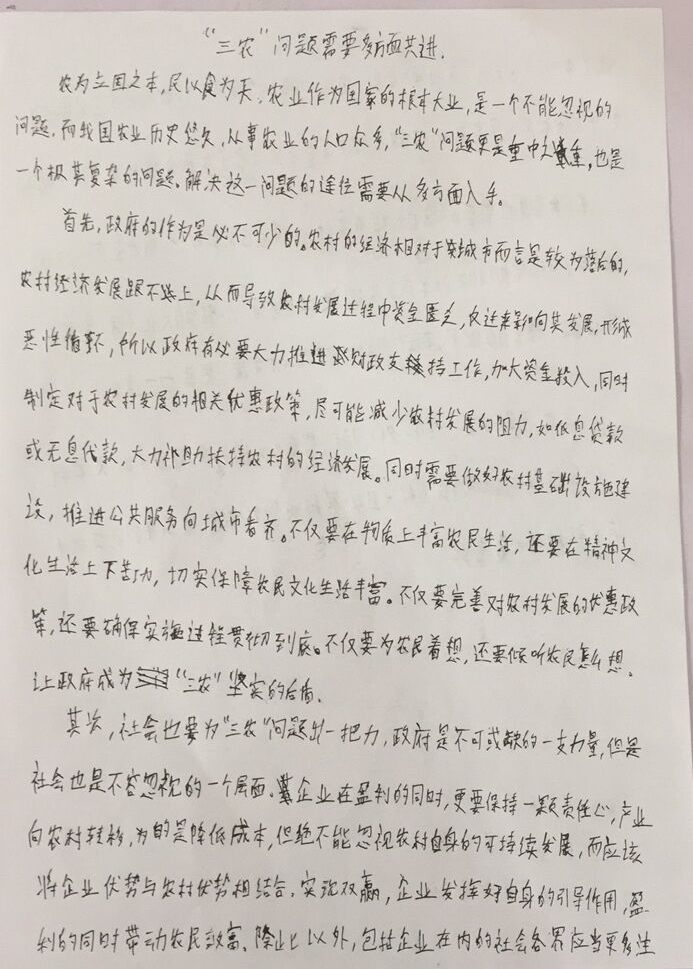 “三农”问题需要多方面共进.
农为立国之本,民以食为天.农业作为国家的根本大业,是一个不能忽视的
问题.而我国农业历史悠久,从事农业的人口众多,“三农”问题更是重中之重,也是
一个极其复杂的问题。解决这一问题的途径需要从多方面入手。
首先,政府的作为是必不可少的。农村的经济相对于城市而言是较为落后的,
农村经济发展跟不上,从而导致农村发展过程中资金匮乏,反过来影响其发展,形成
恶性循环,所以政府有必要大力推进财政支持工作,加大资金投入,同时
制定对于农村发展的相关优惠政策,尽可能减少农村发展的阻力,如低息贷款
或无息代款,大力补助扶持农村的经济发展。同时需要做好农村基础设施建
设,推进公共服务向城市看齐。不仅要在物质上丰富农民生活,还要在精神文
化生活上下苦功,切实保障农民文化生活丰富。不仅要完善对农村发展的优惠政
策,还要确保实施过程贯彻到底。不仅要为农民着想,还要倾听农民怎么想。
让政府成为“三农”坚实的后盾.
其次,社会也要为“三农”问题出一把力,政府是不可或缺的一支力量,但是
社会也是不容忽视的一个层面.企业在盈利的同时,更要保持一颗责任心,产业
向农村转移,为的是降低成本,但绝不能忽视农村自身的可持续发展,而应该
将企业优势与农村优势相结合.实现双赢,企业发挥好自身的引导作用,盈
利的同时带动农民致富.除此以外,包括企业在内的社会各界应当更多注